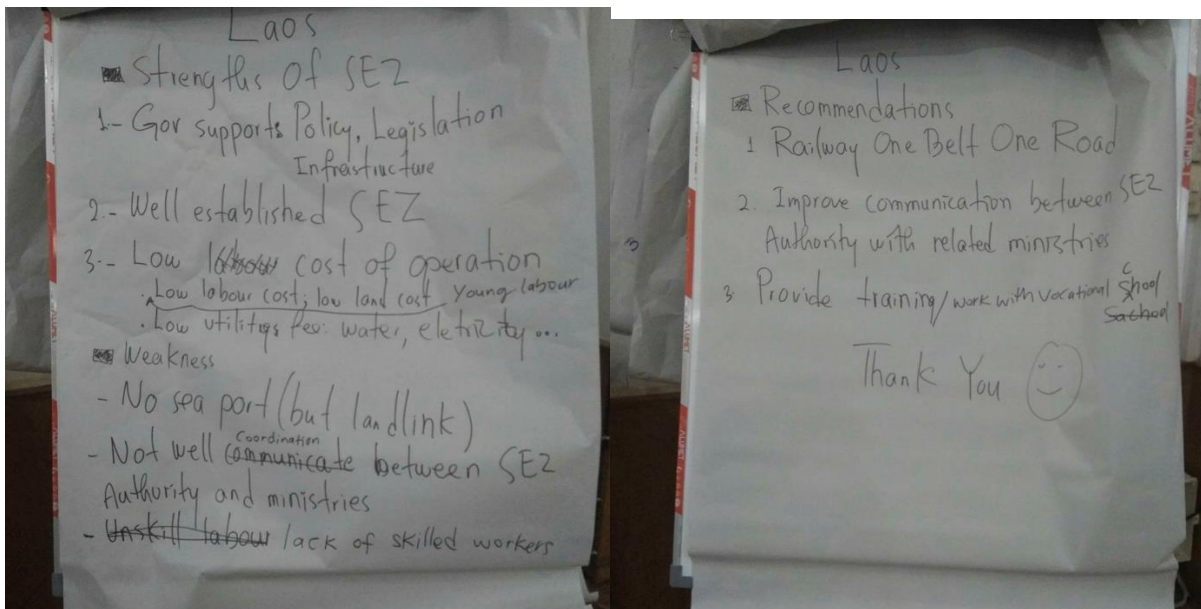 Laos
Strengths Of SEZ
1.- Gov supports Policy, Legislation
Infrastructure
2.- Well established SEZ
3.- Low labour cost of operation
. Low labour cost; low land cost, Young labour
. Low utilitys fee: water, eletrizity...
Weakness
- No sea port (but landlink)
Coordination
- Not well communicate between SEZ
Authority and ministries
- Unskill labour lack of skilled workers
Laos
Recommendations
1 Railway One Belt One Road
2. Improve communication between SEZ
Authority with related ministries
3 Provide training/work with vocational School
Sachool
Thank You